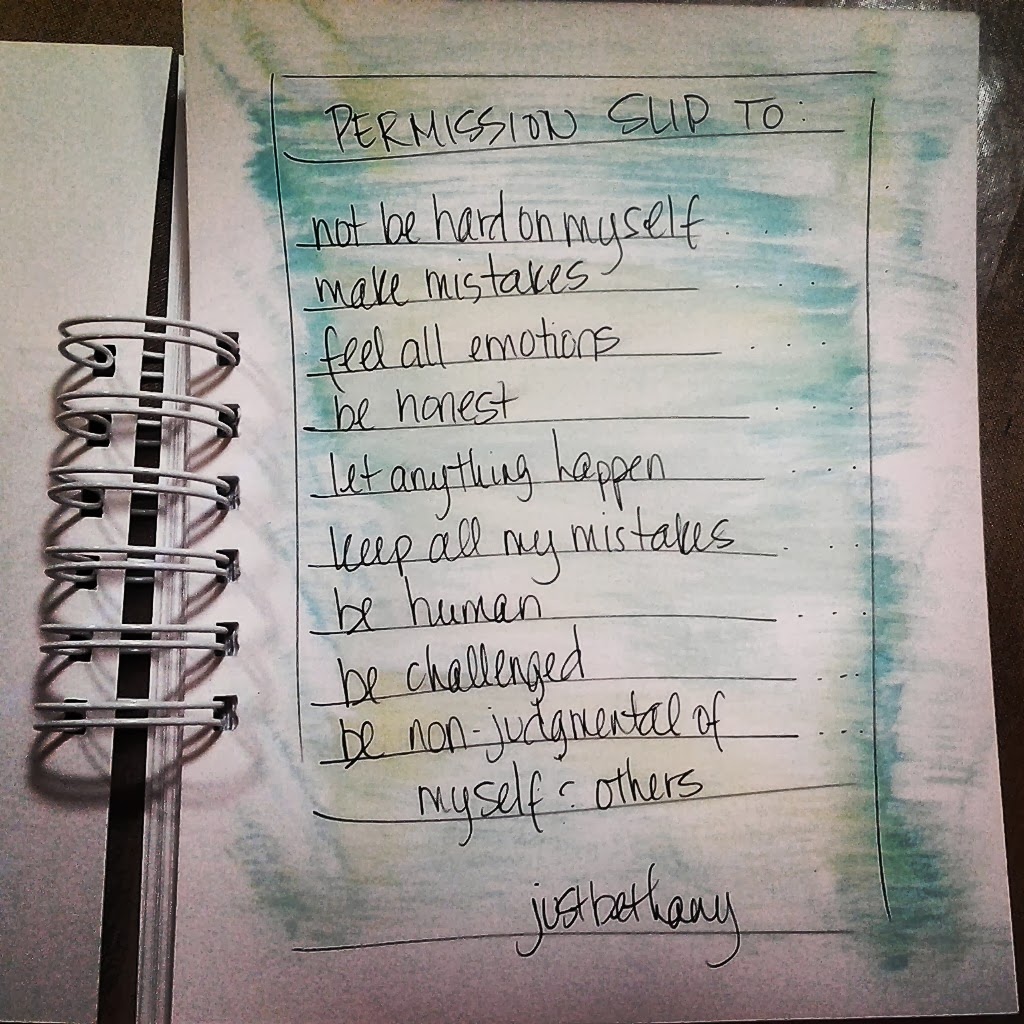 PERMISSION SLIP TO:
not be hard on myself
make mistakes
feel all emotions
be honest
let anything happen
keep all my mistakes
be human
be challenged
be non-judgmental of
myself : others
justbethany